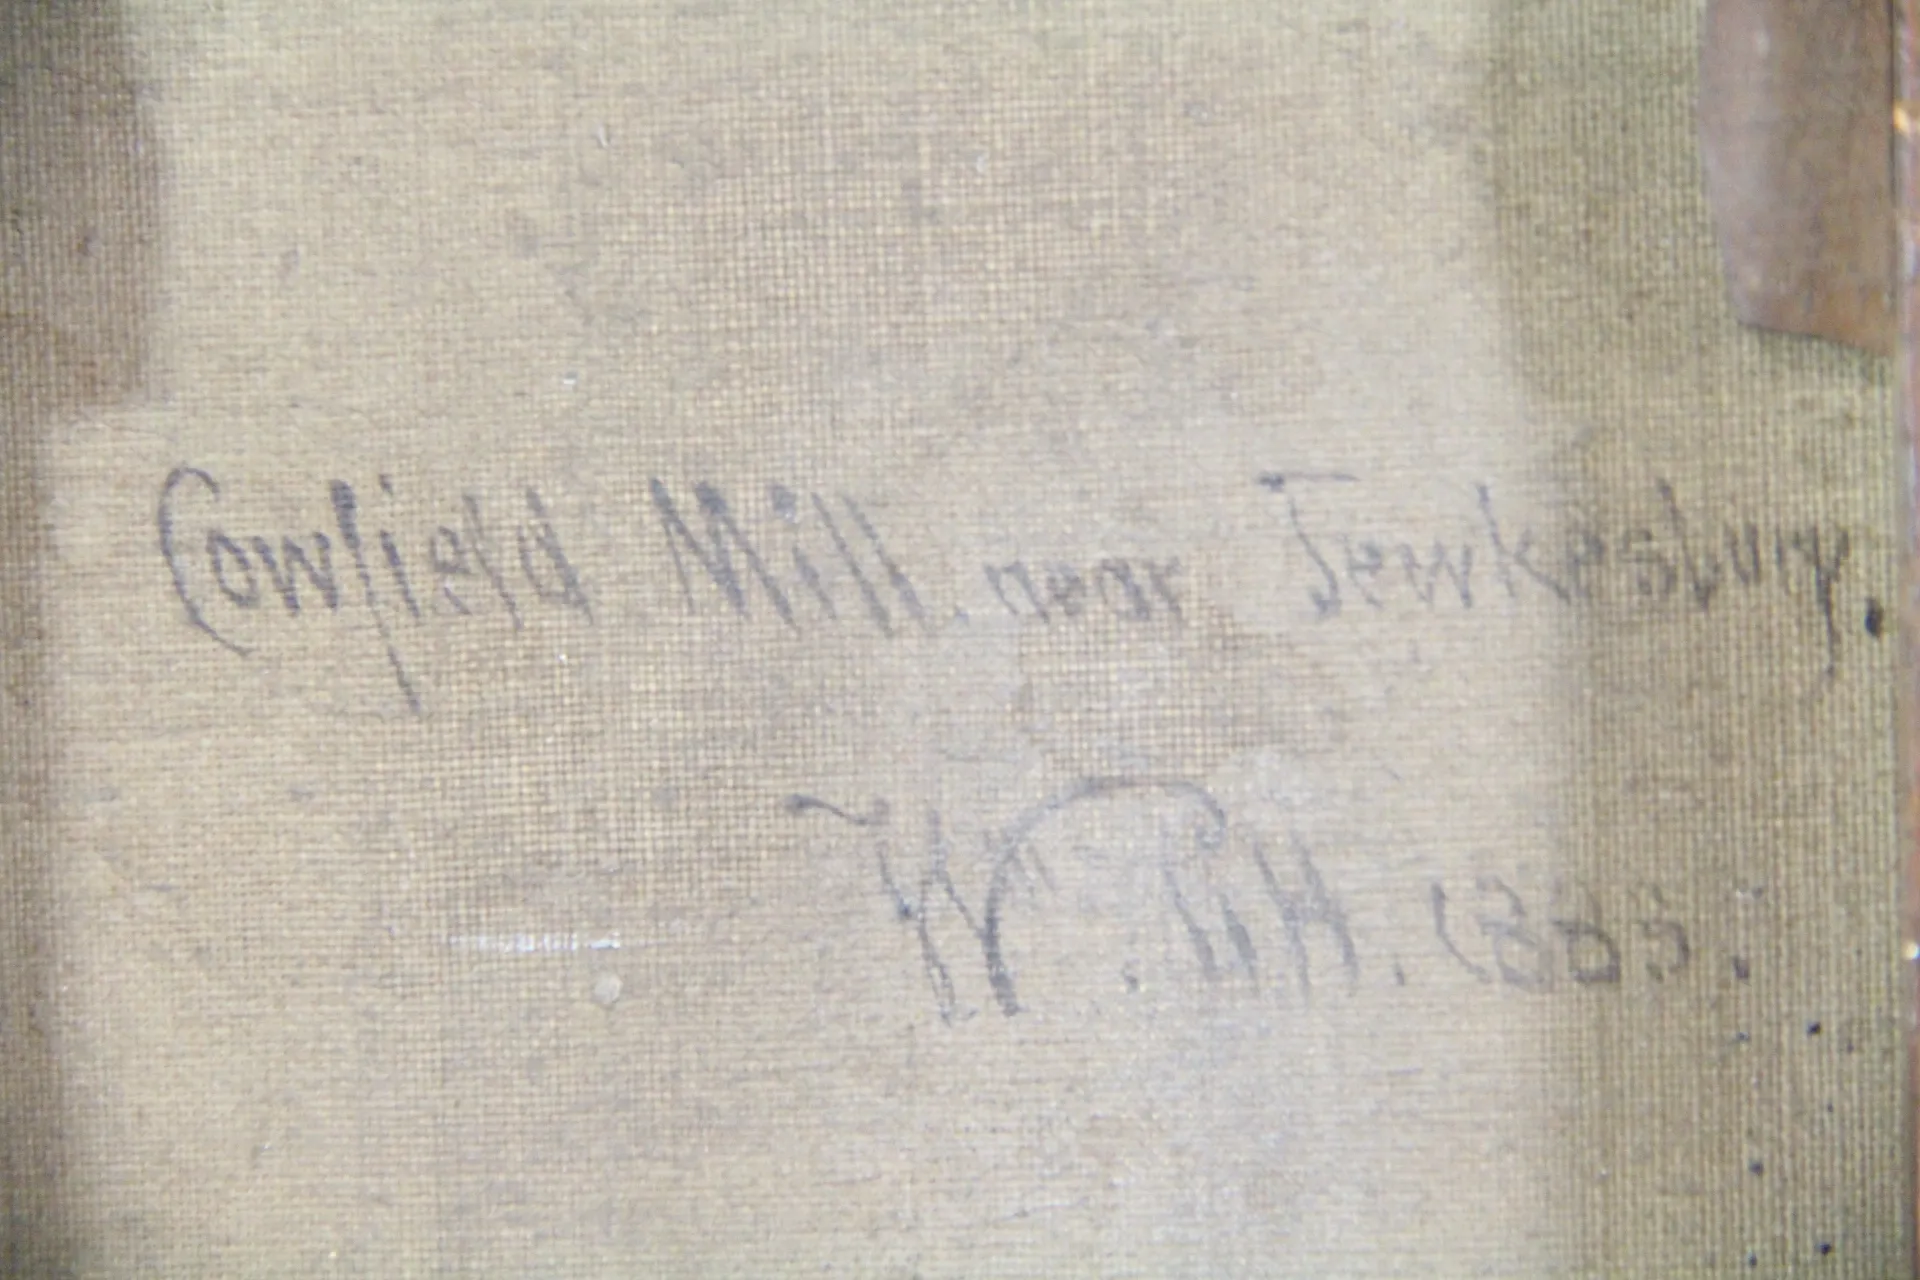 Cowfield Mill. near Tewkesbury.
W